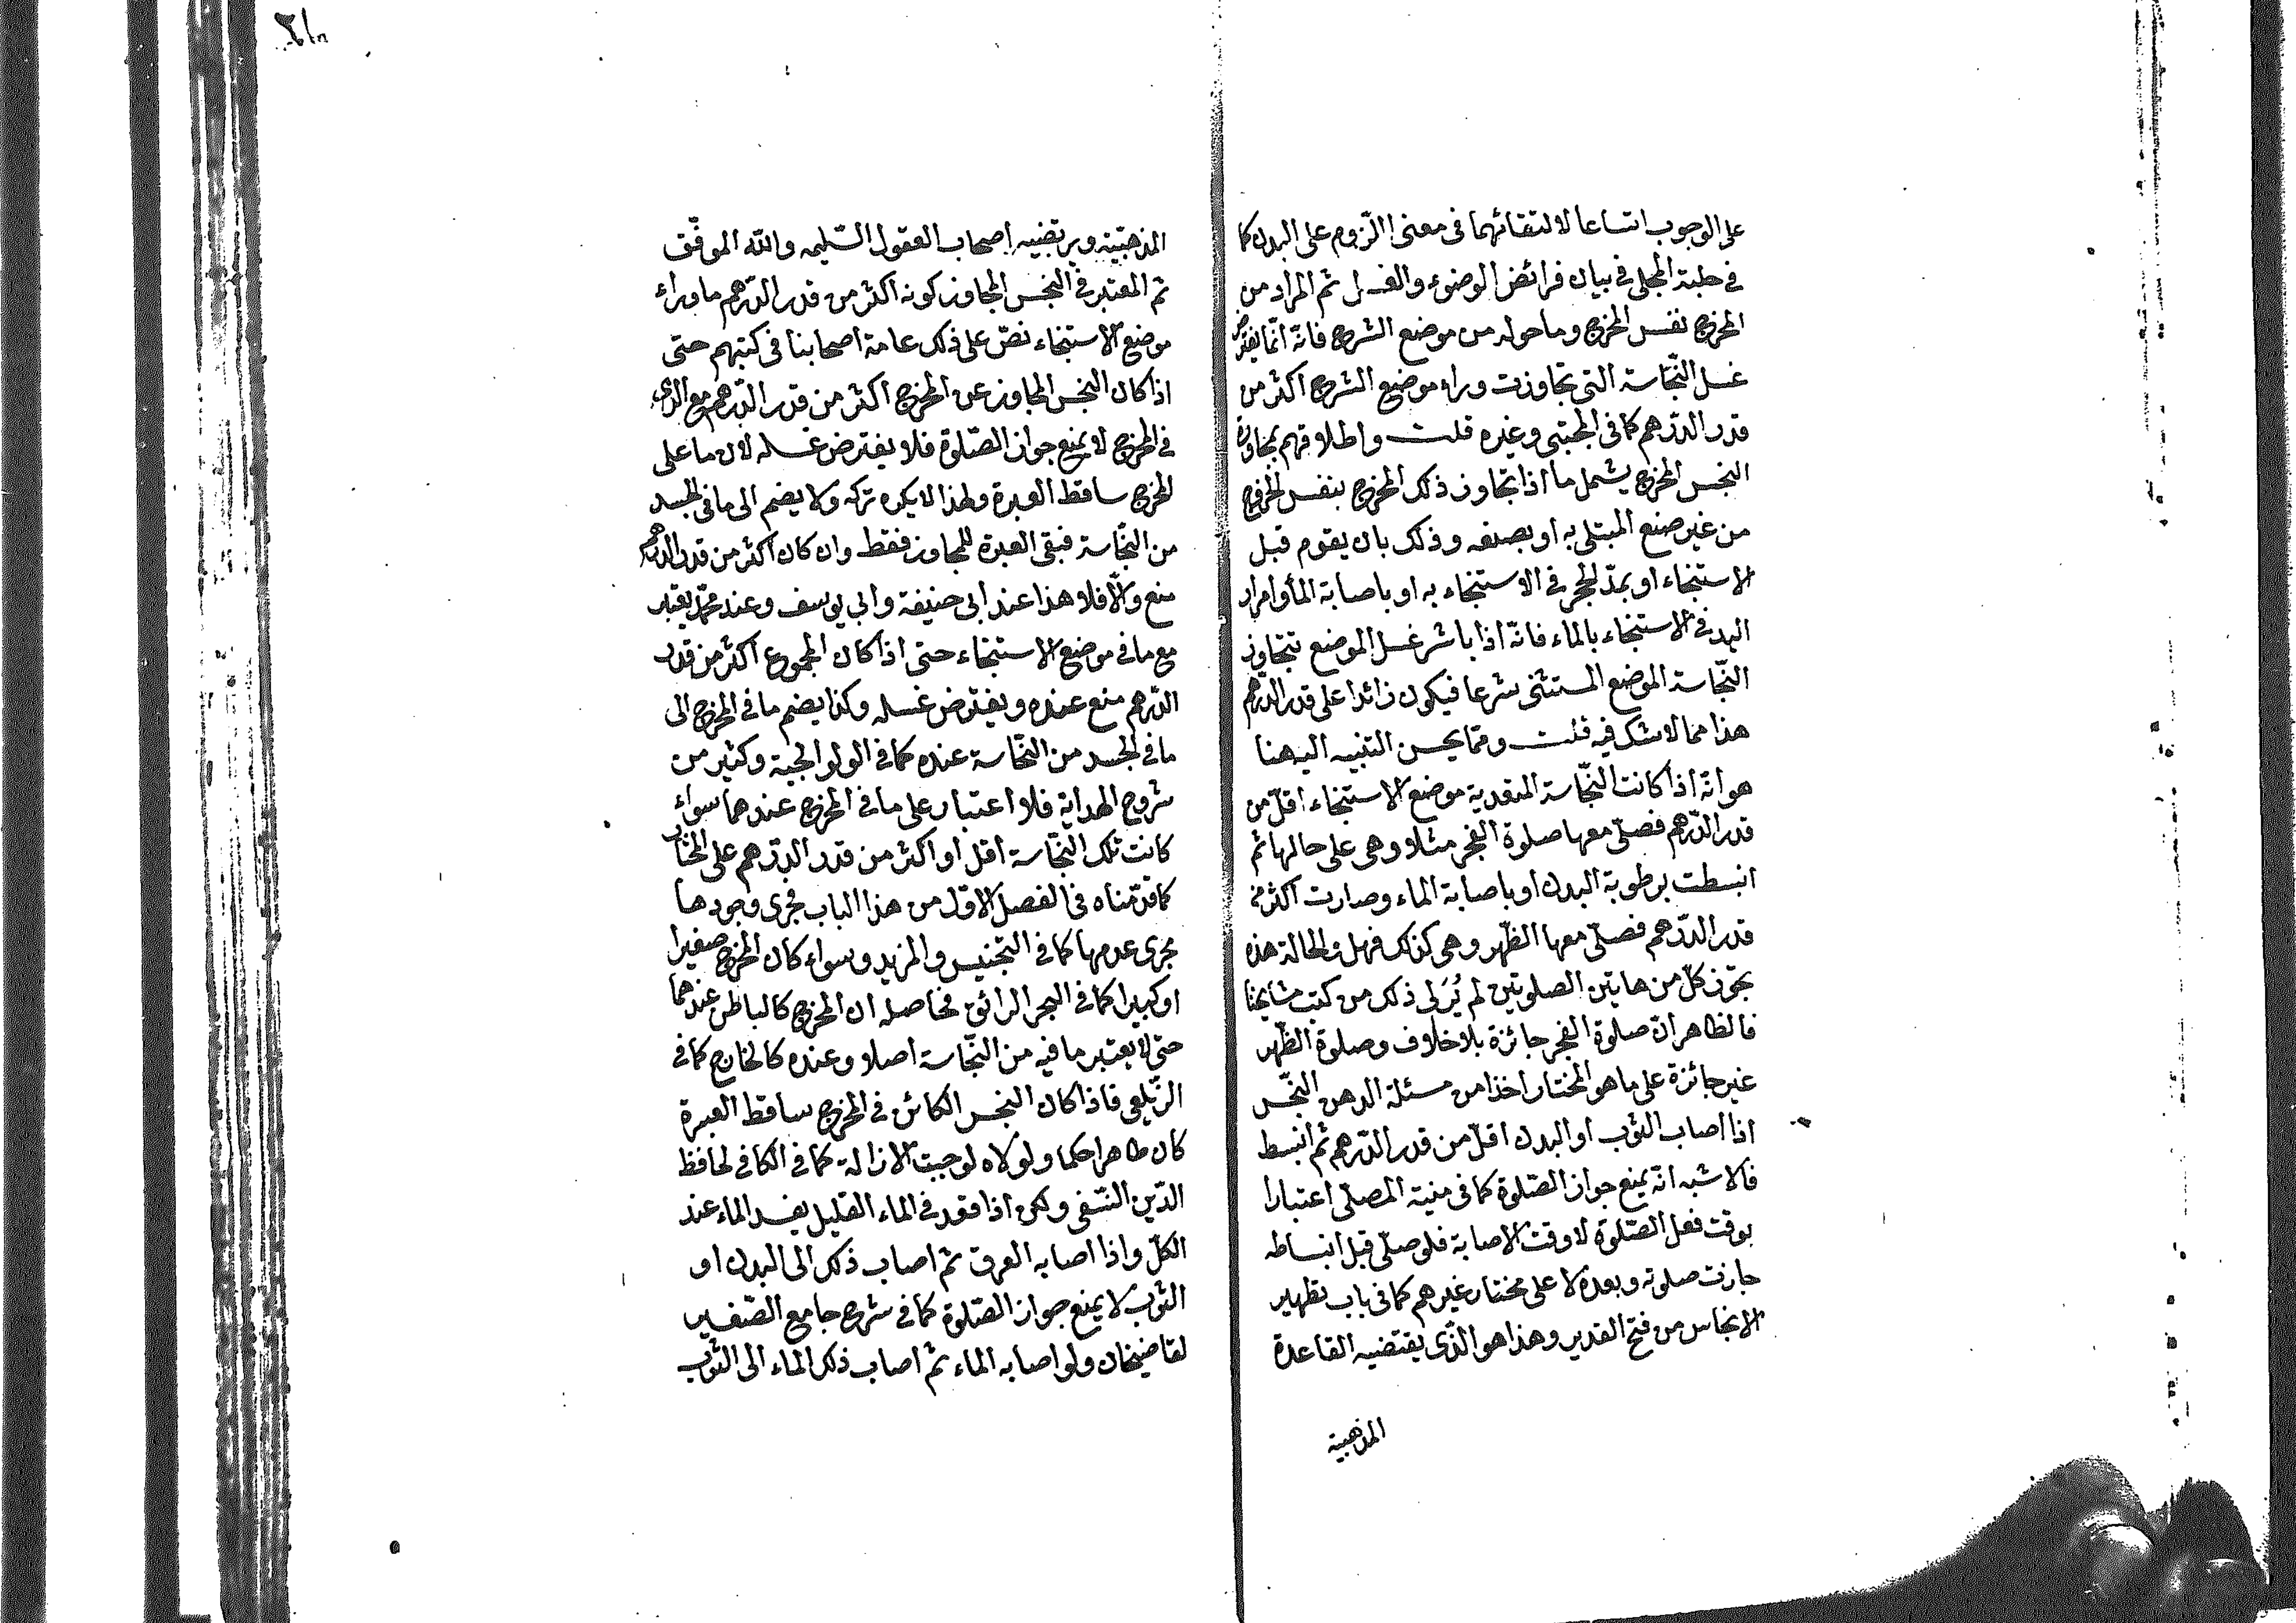 على الوجوب اتساعا لالتقائهما فى معنى اللّزوم على البدن كما
فى حلبة المجلى فى بيان فرائض الوضوء والغسل ثم المراد من
المخرج نفس المخرج وما حوله من موضع الشرج فانّه انّما يفترض
غسل النّجاسة التى تجاوزت وراء موضع الشرج اكثر من
قدر الدّرهم كما فى المجتبى وغيره قلت واطلاقهم تجاوزة
النجس المخرج يشمل ما اذا تجاوز ذلك المخرج بنفس الخروج
من غير صنع المبتلى به او بصنعه وذلك بان يقوم قبل
الاستنجاء او بمدّ الحجر فى الاستنجاء به او باصابة الماء وامرار
اليد فى الاستنجاء بالماء فانّه اذا باشر غسل الموضع تتجاوز
النّجاسة الموضع المستثنى شرعا فيكون زائدا على قدر الدّرهم
هذا مما لا شك فيه قلت وممّا يحسن التنبيه اليه هنا
هو انّه اذا كانت النّجاسة المتعدية موضع الاستنجاء اقلّ من
قدر الدّرهم فصلّى معها صلوة الفجر مثلا وهى على حالها ثم
انبسطت برطوبة البدن او باصابة الماء وصارت اكثر من
قدر الدّرهم فصلّى معها الظّهر وهى كذلك فهل والحالة هذه
يجوز كلّ من هاتين الصلوتين لم يُرَ لى ذلك من كتب مشايخنا
فالظاهر انّ صلوة الفجر جائزة بلا خلاف وصلوة الظّهر
غير جائزة على ما هو المختار اخذا من مسئلة الدهن النّجس
اذا اصاب الثوب او البدن اقلّ من قدر الدّرهم ثم انبسط
فالاشبه انّه يمنع جواز الصّلوة كما فى منية المصلّى اعتبارا
بوقت فعل الصّلوة لا وقت الاصابة فلو صلّى قبل انبساطه
جازت صلوته وبعده لا على مختار غيرهم كما فى باب تطهير
الانجاس من فتح القدير وهذا هو الّذى يقتضيه القاعدة
المذهبية
المذهبيّة ويرتضيه اصحاب العقول السّليمه والله الموفّق
ثم المعتبر فى النجس المجاوز كونه اكثر من قدر الدّرهم ما وراء
موضع الاستنجاء نصّ على ذلك عامة اصحابنا فى كتبهم حتى
اذا كان النجس المجاوز عن المخرج اكثر من قدر الدّرهم مع الذى
فى المخرج لا يمنع جواز الصّلوة فلا يفترض غسله لان ما على
المخرج ساقط العبرة ولهذا لا يكره تركه ولا يضم الى ما فى الجسد
من النّجاسة فبقى العبرة للمجاوز فقط وان كان اكثر من قدر الدّرهم
منع والّا فلا هذا عند ابى حنيفة وابى يوسف وعند محمّد يعتبر
مع ما فى موضع الاستنجاء حتى اذا كان المجموع اكثر من قدر
الدّرهم منع عنده ويفترض غسله وكذا يضم ما فى المخرج الى
ما فى الجسد من النّجاسة عنده كما فى الولوالجية وكثير من
شروح الهداية فلا اعتبار على ما فى المخرج عندهما سواء
كانت تلك النّجاسة اقل او اكثر من قدر الدّرهم على المختار
كما قدّمناه فى الفصل الاوّل من هذا الباب فجرى وجودها
مجرى عدمها كما فى التجنيس والمزيد وسواء كان المخرج صغيرا
او كبيرا كما فى البحر الرائق فحاصله ان المخرج كالباطن عندهما
حتى لا يعتبر ما فيه من النّجاسة اصلا وعنده كالخارج كما فى
الزّيلعى فاذا كان النجس الكائن فى المخرج ساقط العبرة
كان طاهرا حكما ولولاه لوجبت الازالة كما فى الكافى لحافظ
الدّين النّسفى ولكن اذا قعد فى الماء القليل يفسد الماء عند
الكلّ واذا اصابه العرق ثم اصاب ذلك الى البدن او
الثوب لا يمنع جواز الصّلوة كما فى شرح جامع الصّغير
لقاضيخان ولو اصابه الماء ثم اصاب ذلك الماء الى الثوب